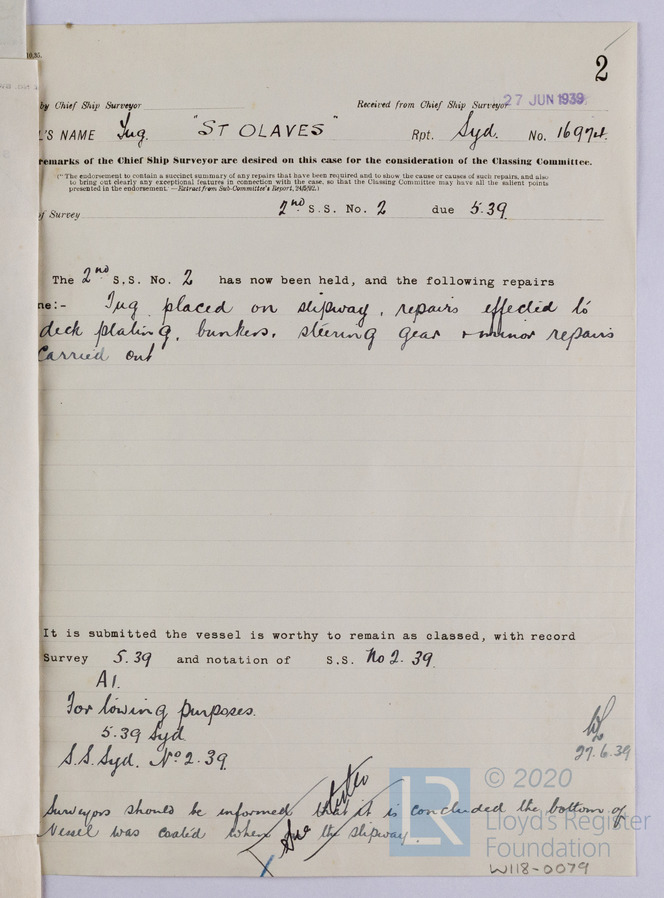 2
by Chief Ship Surveyor
Received from Chief Ship Surveyor 27 JUN 1939
L'S NAME Tug. "ST OLAVES" Rpt. Syd. No. 16974.
remarks of the Chief Ship Surveyor are desired on this case for the consideration of the Classing Committee.
("The endorsement to contain a succinct summary of any repairs that have been required and to show the cause or causes of such repairs, and also
to bring out clearly any exceptional features in connection with the case, so that the Classing Committee may have all the salient points
presented in the endorsement."—Extract from Sub-Committee's Report, 24/5/92.)
of Survey 2nd S.S. No. 2 due 5.39
The 2nd S.S. No. 2 has now been held, and the following repairs
ne:- Tug placed on slipway, repairs effected to
deck plating, bunkers, steering gear + minor repairs
carried out
It is submitted the vessel is worthy to remain as classed, with record
Survey 5.39 and notation of S.S. No 2. 39
A1.
For towing purposes.
5.39 Syd
S.S. Syd. No 2.39.
27.6.39
Surveyors should be informed that it is concluded the bottom of
Vessel was coated when on the slipway.
© 2020
LR
Lloyd's Register
Foundation
W118-0079